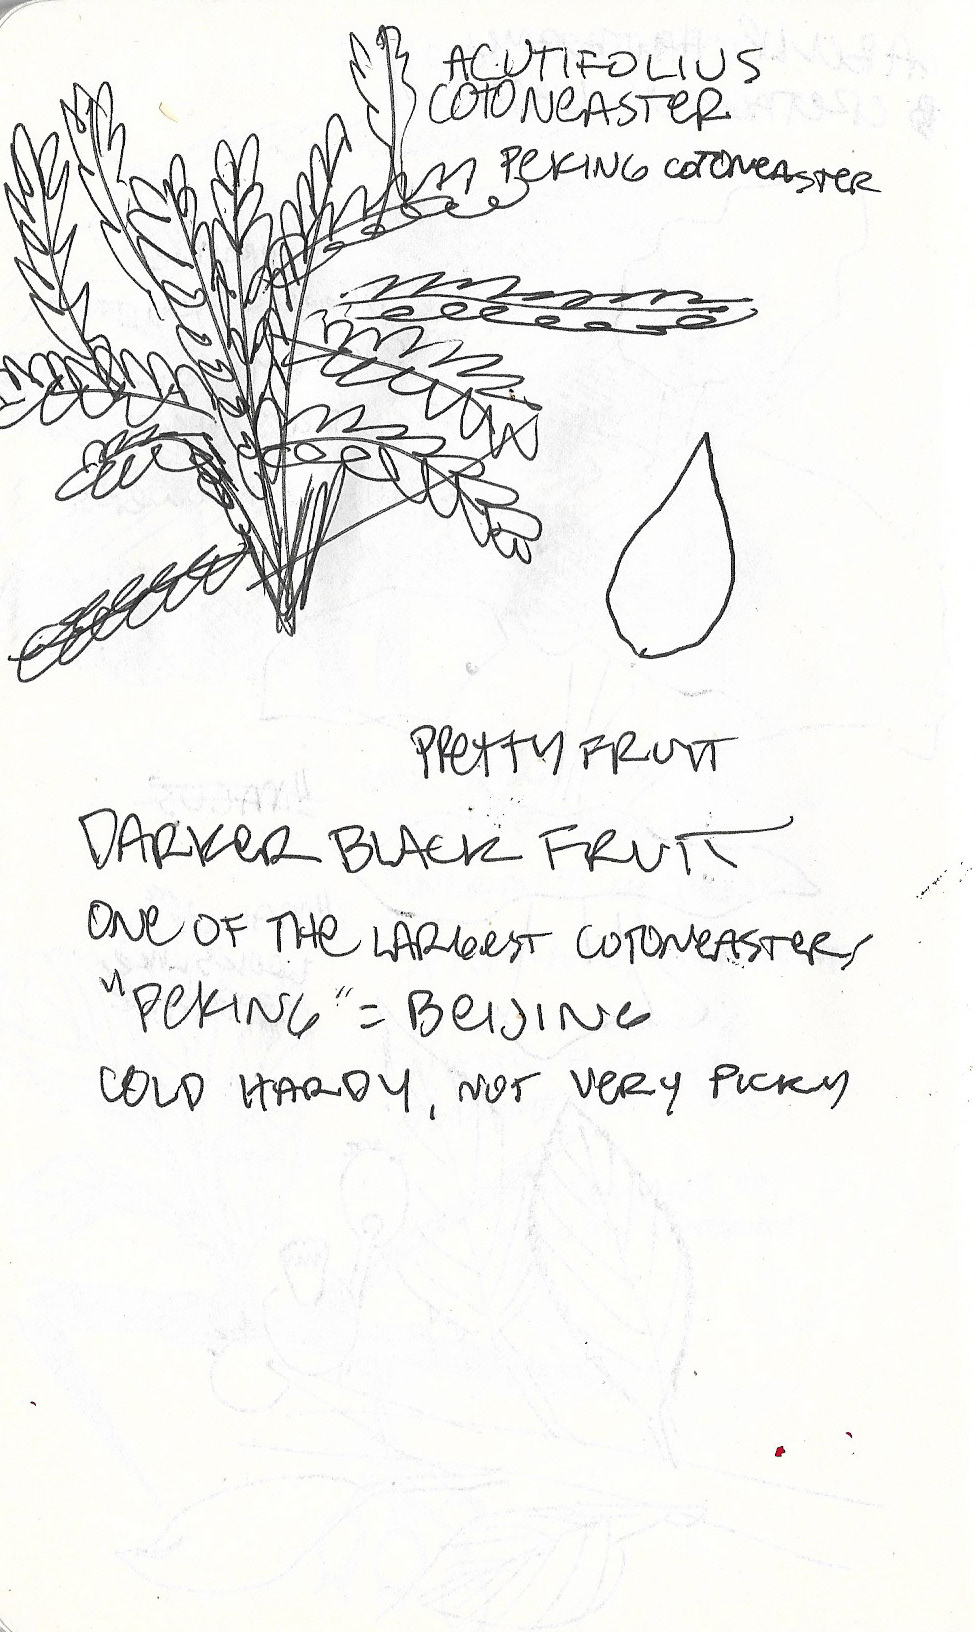 ACUTIFOLIUS
COTONEASTER
PEKING COTONEASTER
PRETTY FRUIT
DARKER BLACK FRUIT
ONE OF THE LARGEST COTONEASTERS
"PEKING" = BEIJING
COLD HARDY, NOT VERY PICKY